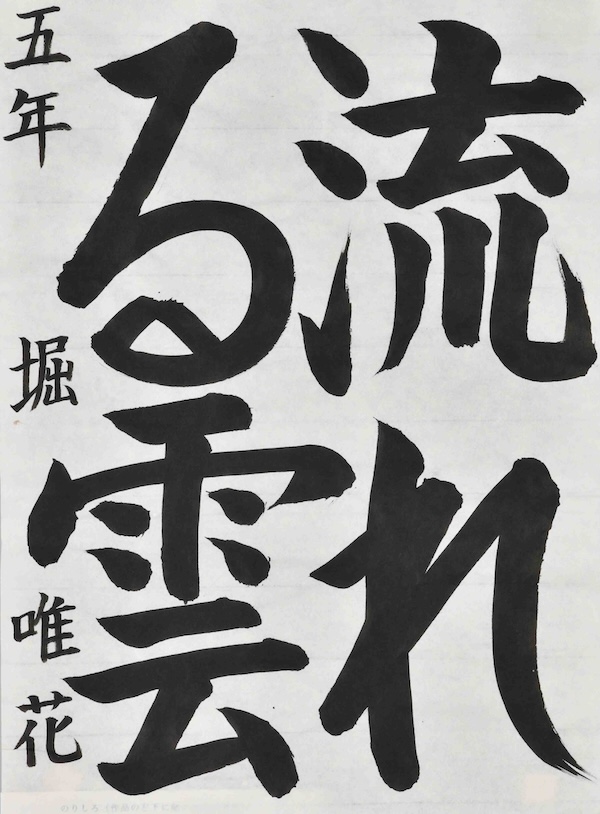 流れ
る雲
五年 堀 唯花